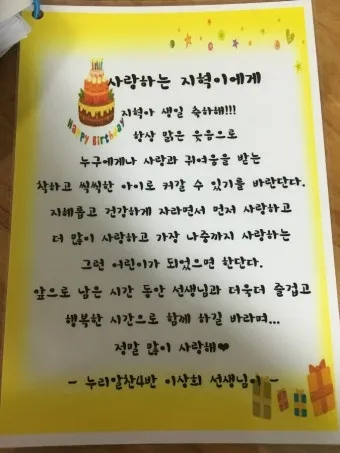 사랑하는 지혁이에게
지혁아 생일 축하해!!!
항상 맑은 웃음으로
Happy Birthday
누구에게나 사랑과 귀여움을 받는
착하고 씩씩한 아이로 커갈 수 있기를 바란단다.
지혜롭고 건강하게 자라면서 먼저 사랑하고
더 많이 사랑하고 가장 나중까지 사랑하는
그런 어린이가 되었으면 한단다.
앞으로 남은 시간 동안 선생님과 더욱더 즐겁고
행복한 시간으로 함께 하길 바라며...
정말 많이 사랑해❤
- 누리알찬4반 이상희 선생님이 -